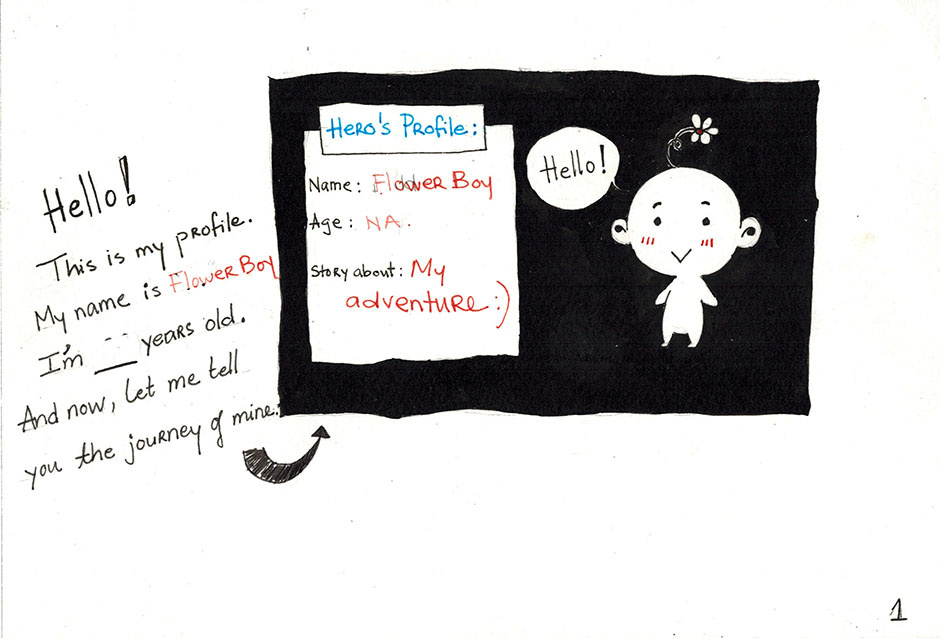 Hello!
This is my profile.
My name is Flower Boy
I'm __ years old.
And now, let me tell
you the journey of mine:
Hero's Profile:
Name: Flower Boy
Age: NA.
Story about: My
adventure :)
Hello!
1